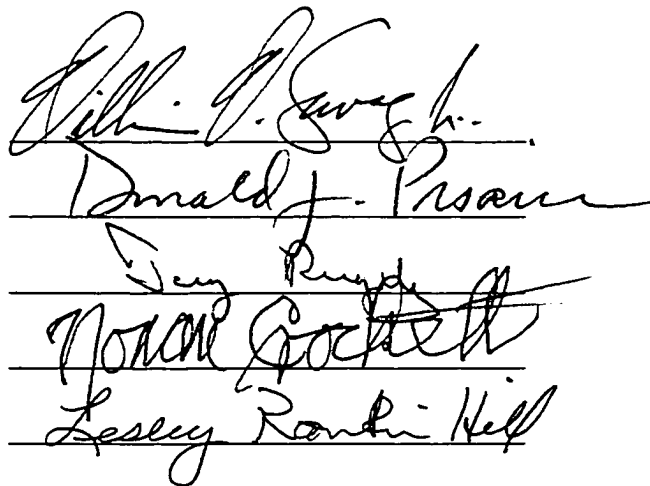 William W. Savage Jr.
Donald J. Pisani
Terry Rugeley
Norman Crockett
Lesley Rankin-Hill